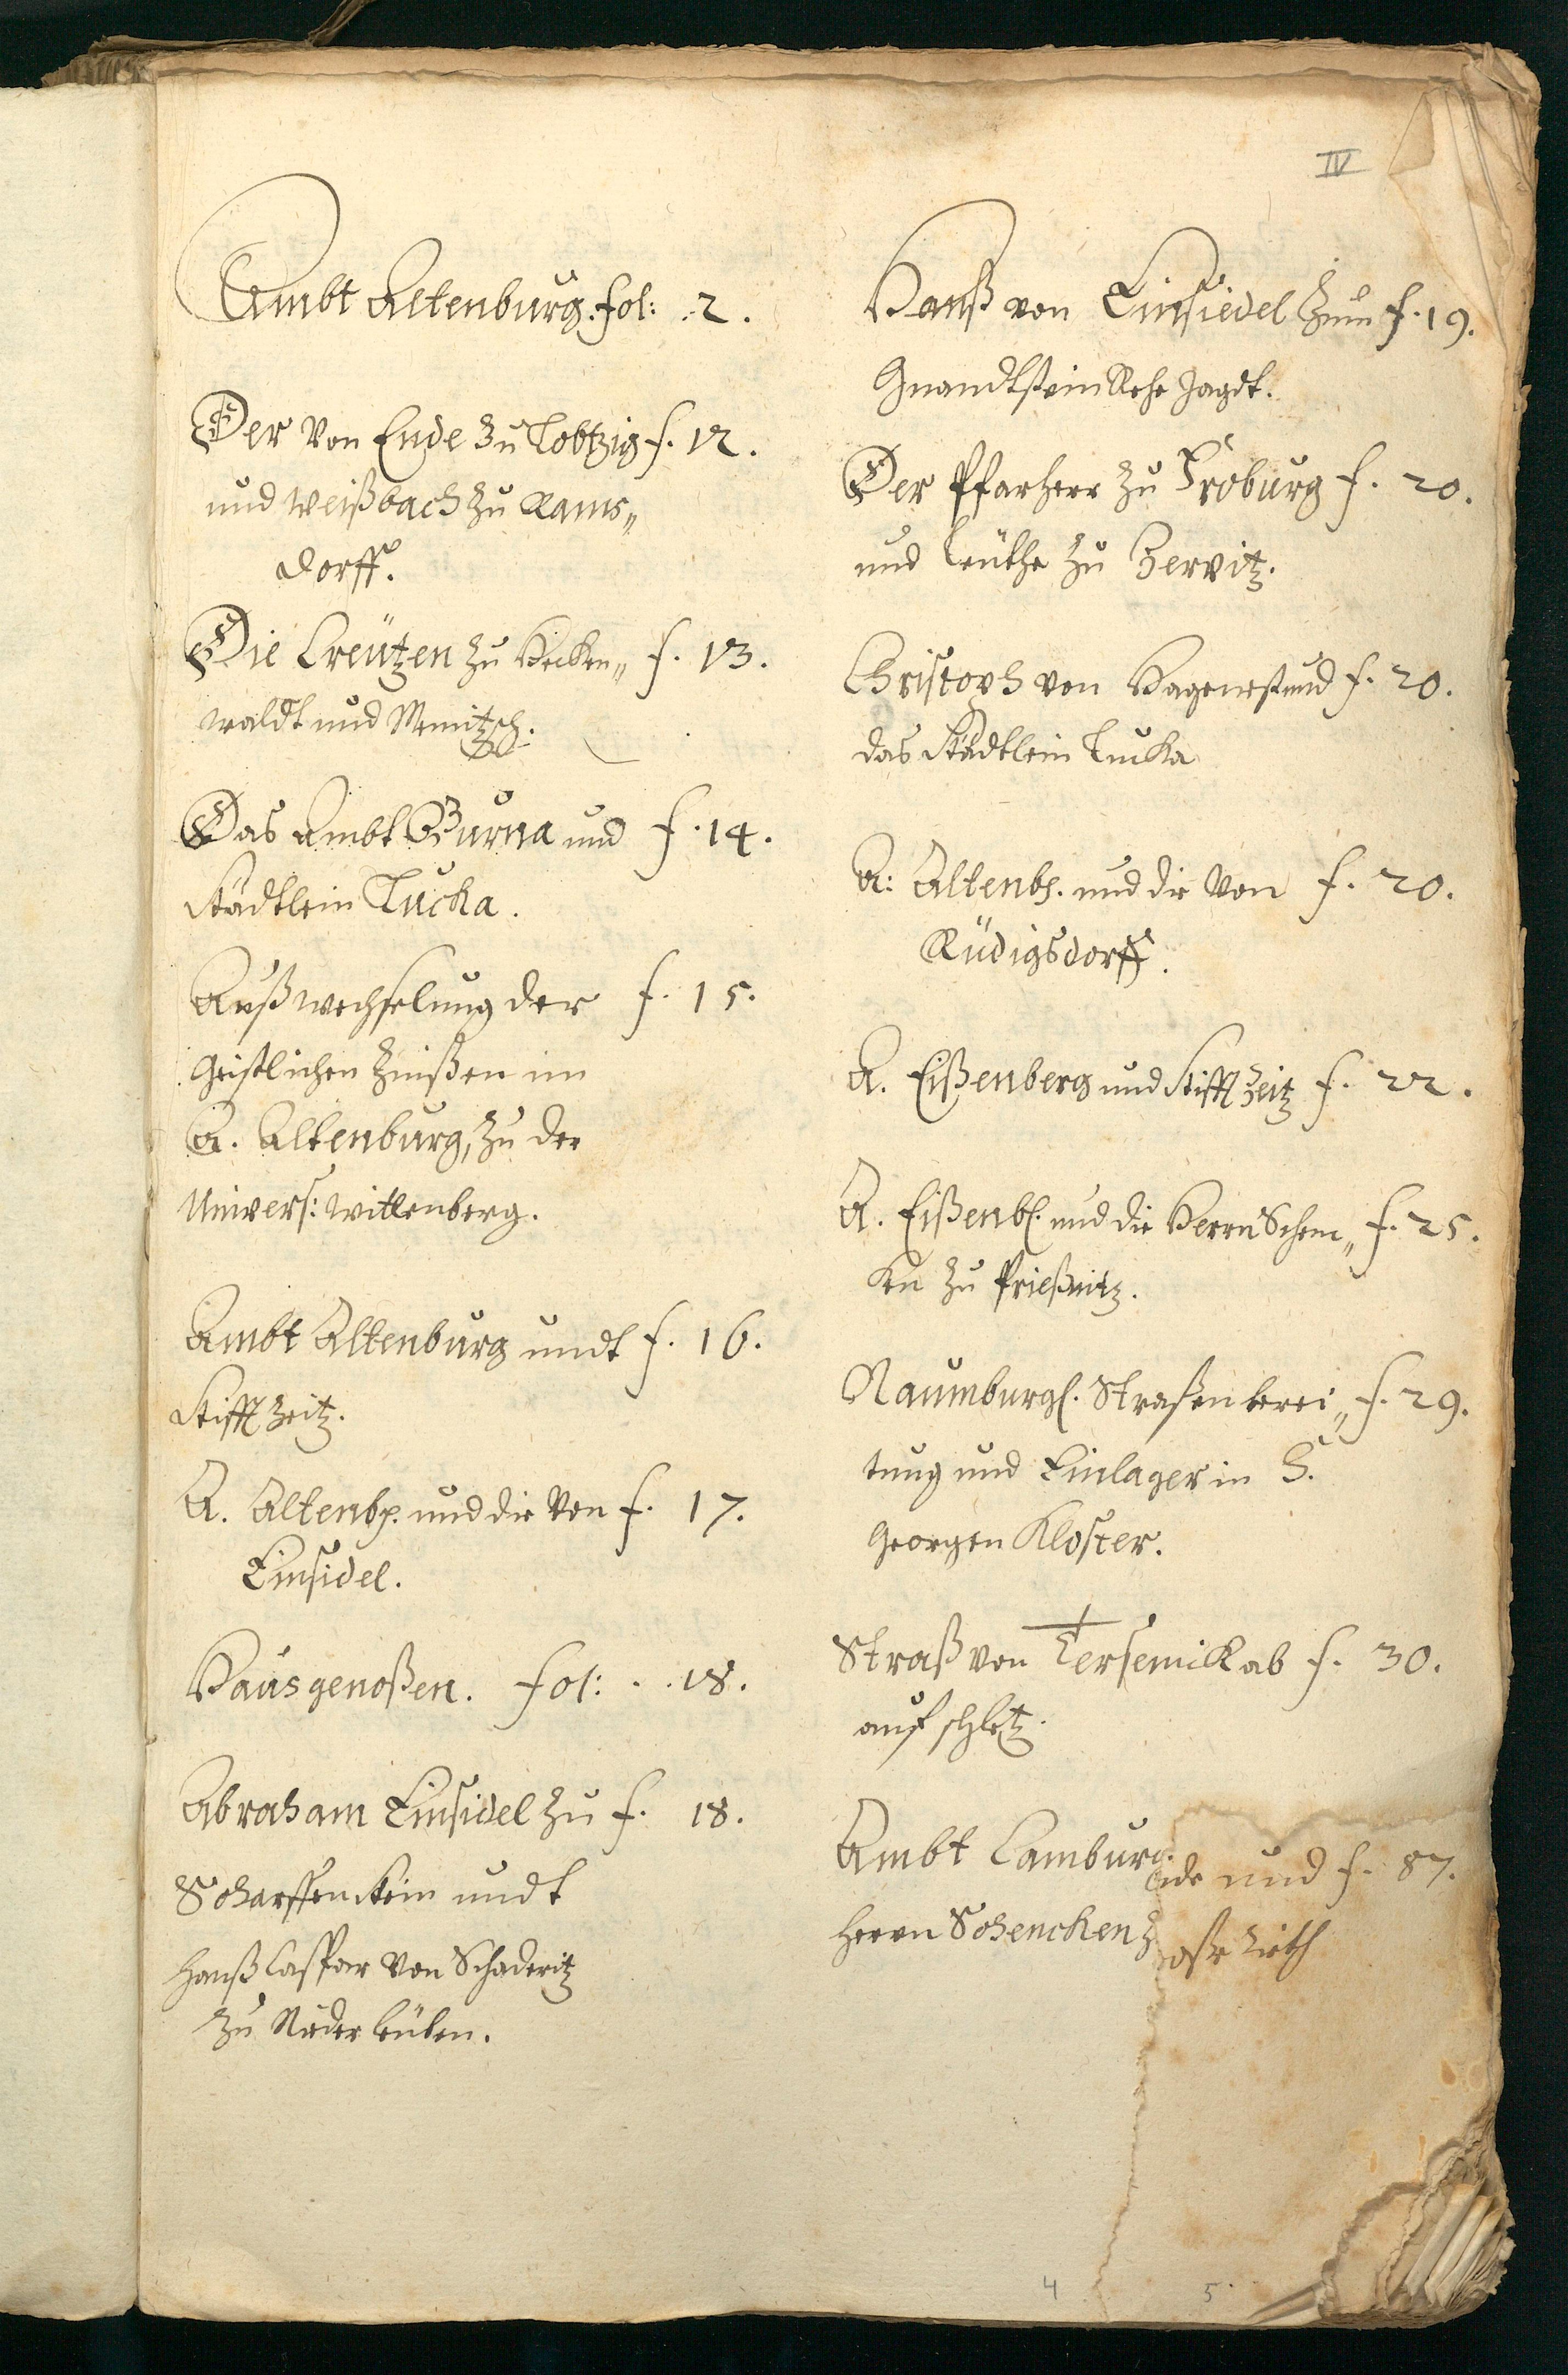 IV
Ambt Altenburg. fol: 2.
Der Von Ende zu Lobtzig f. 12.
und Weißbach zu Rams„
dorff.
Die Creützen zu Hecken„ f. 13.
waldt und
Das Ambt Burna und f. 14.
Städtlein Lucka.
Außwechselung der f. 15.
Geistlichen Zinßen im
A. Altenburg, zu der
Univers: Wittenberg.
Ambt Altenburg undt f. 16.
Stifft Zeitz.
A. Altenbg. und die Von f. 17.
Einsidel.
Hausgenoßen. fol: . . 18.
Abraham Einsidel zu f. 18.
Scharffenstein undt
Hanß Caspar Von Schaderitz
zu Nieder leüben.
Hanß von Einsiedel zum f. 19.
Gnandtstein Rehe Jagdt.
Der Pfarherr zu Froburg f. 20.
und Leüthe zu Zervitz.
Christoph von Hagenest und f. 20.
das Städtlein Lucka
A: Altenbg. und die Von f. 20.
Rüdigsdorff.
A. Eißenberg und Stifft Zeitz f. 22.
A. Eißenbg. und die Herrn Schen„ f. 25.
ken zu Prießnitz.
Naumburgl. Straßenberei„ f. 29.
tung und Einlager in S.
Georgen Kloster.
Straß von ab f. 30.
auf
Ambt Camburg.
ide und f. 87.
Herrn Schencken z
4 5